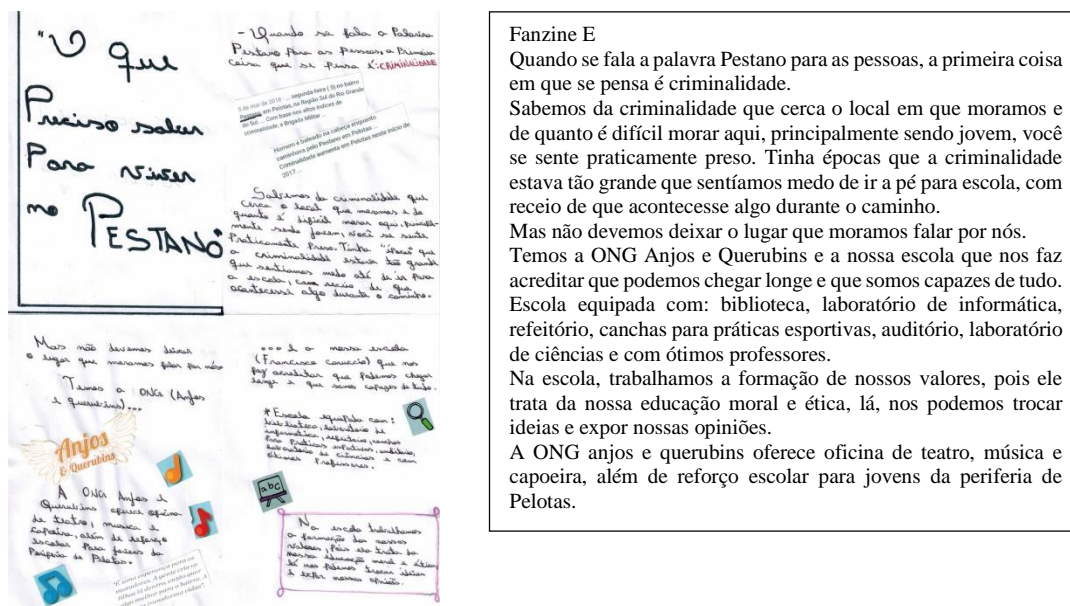 "O Que
Preciso saber
Para viver
no PESTANO"
- Quando se fala a Palavra
Pestano Para as Pessoas, a Primeira
Coisa que se Pensa é: CRIMINALIDADE
5 de mar de 2018 ... segunda-feira ( 5) no bairro
Pestano, em Pelotas, na Região Sul do Rio Grande
do Sul. ... Com base nos altos índices de
criminalidade, a Brigada Militar ...
Homem é baleado na cabeça enquanto
caminhava pelo Pestano em Pelotas ...
Criminalidade aumenta em Pelotas neste início de
2017 ...
Sabemos da criminalidade que
cerca o local que moramos e de
quanto é difícil morar aqui, principal-
mente sendo jovem, você se sente
Praticamente Preso. Tinha "épocas" que
a criminalidade estava tão grande
que sentíamos medo até de ir Para
a escola, com receio de que
acontecesse algo durante o caminho.
Mas não devemos deixar
o lugar que moramos falar por nós
Temos a ONG (Anjos
e querubins)...
Anjos
& Querubins
A ONG Anjos e
Querubins oferece oficina
de teatro, musica e
capoeira, além de reforço
escolar Para jovens da
Periferia de Pelotas.
"É uma esperança para os
moradores. A gente cria os
filhos lá dentro, então quer
algo melhor para o bairro. A
transforma vidas"
... E a nossa escola
(Francisco Caruccio) que nos
faz acreditar que Podemos chegar
longe e que somos capazes de tudo.
* Escola equipada com:
biblioteca, laboratório de
informática, refeitório, canchas
Para Práticas esportivas, auditório,
laboratório de ciências e com
ótimos Professores.
abc
Na escola trabalhamos
a formação dos nossos
valores, Pois ele trata da
nossa educação moral e ética,
lá nos Podemos trocar ideias
e expor nossas opinião.
Fanzine E
Quando se fala a palavra Pestano para as pessoas, a primeira coisa
em que se pensa é criminalidade.
Sabemos da criminalidade que cerca o local em que moramos e
de quanto é difícil morar aqui, principalmente sendo jovem, você
se sente praticamente preso. Tinha épocas que a criminalidade
estava tão grande que sentíamos medo de ir a pé para escola, com
receio de que acontecesse algo durante o caminho.
Mas não devemos deixar o lugar que moramos falar por nós.
Temos a ONG Anjos e Querubins e a nossa escola que nos faz
acreditar que podemos chegar longe e que somos capazes de tudo.
Escola equipada com: biblioteca, laboratório de informática,
refeitório, canchas para práticas esportivas, auditório, laboratório
de ciências e com ótimos professores.
Na escola, trabalhamos a formação de nossos valores, pois ele
trata da nossa educação moral e ética, lá, nos podemos trocar
ideias e expor nossas opiniões.
A ONG anjos e querubins oferece oficina de teatro, música e
capoeira, além de reforço escolar para jovens da periferia de
Pelotas.